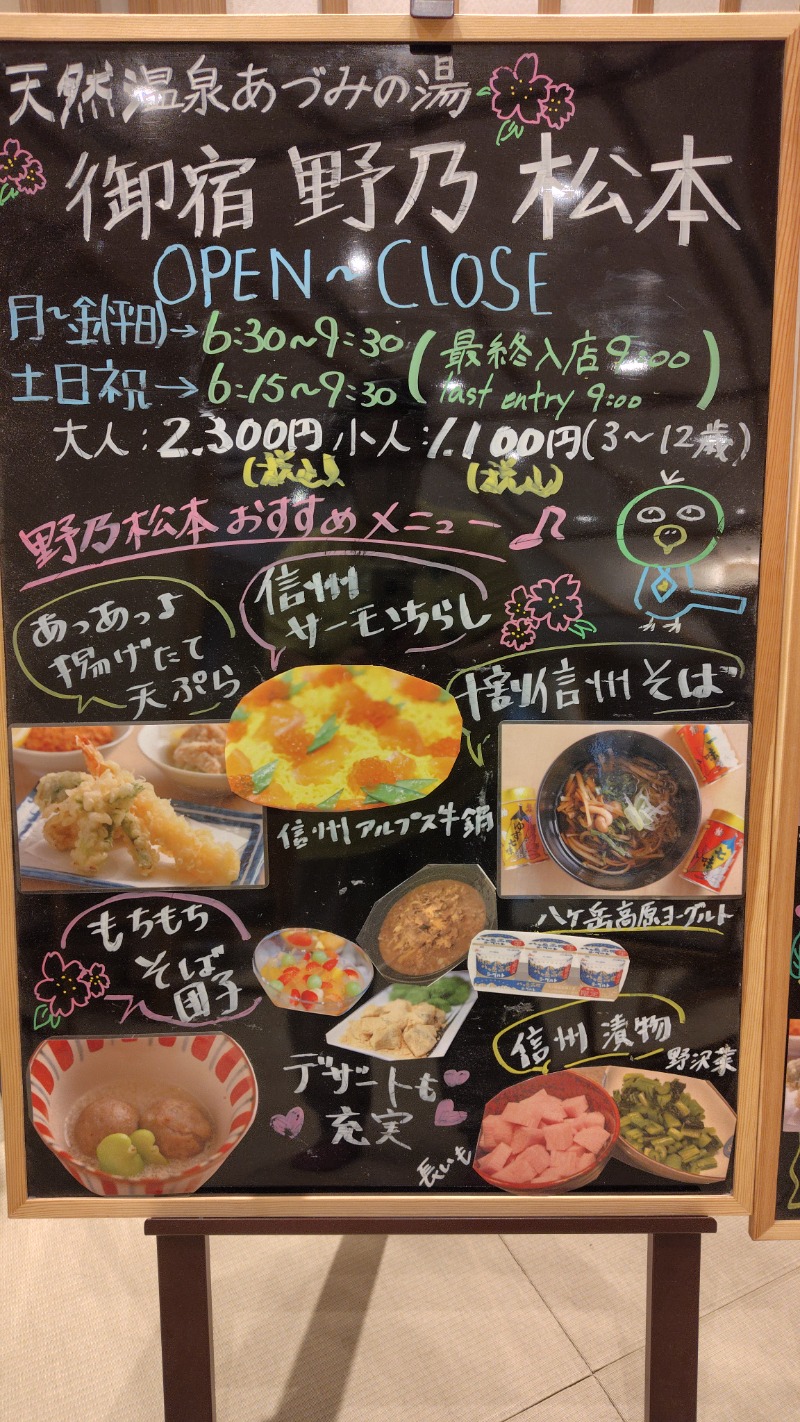 天然温泉あづみの湯
御宿 野乃 松本
OPEN~CLOSE
月~金(平日)→6:30~9:30
土日祝→6:15~9:30
(最終入店9:00
last entry 9:00)
大人:2.300円 小人:1.100円(3~12歳)
(税込) (税込)
野乃松本おすすめメニュー♪
あっあっ♪
揚げたて
天ぷら
信州
サーモンちらし
十割信州そば
信州アルプス牛鍋
八ヶ岳高原ヨーグルト
もちもち
そば
団子
デザートも
充実
信州 漬物
野沢菜
長いも